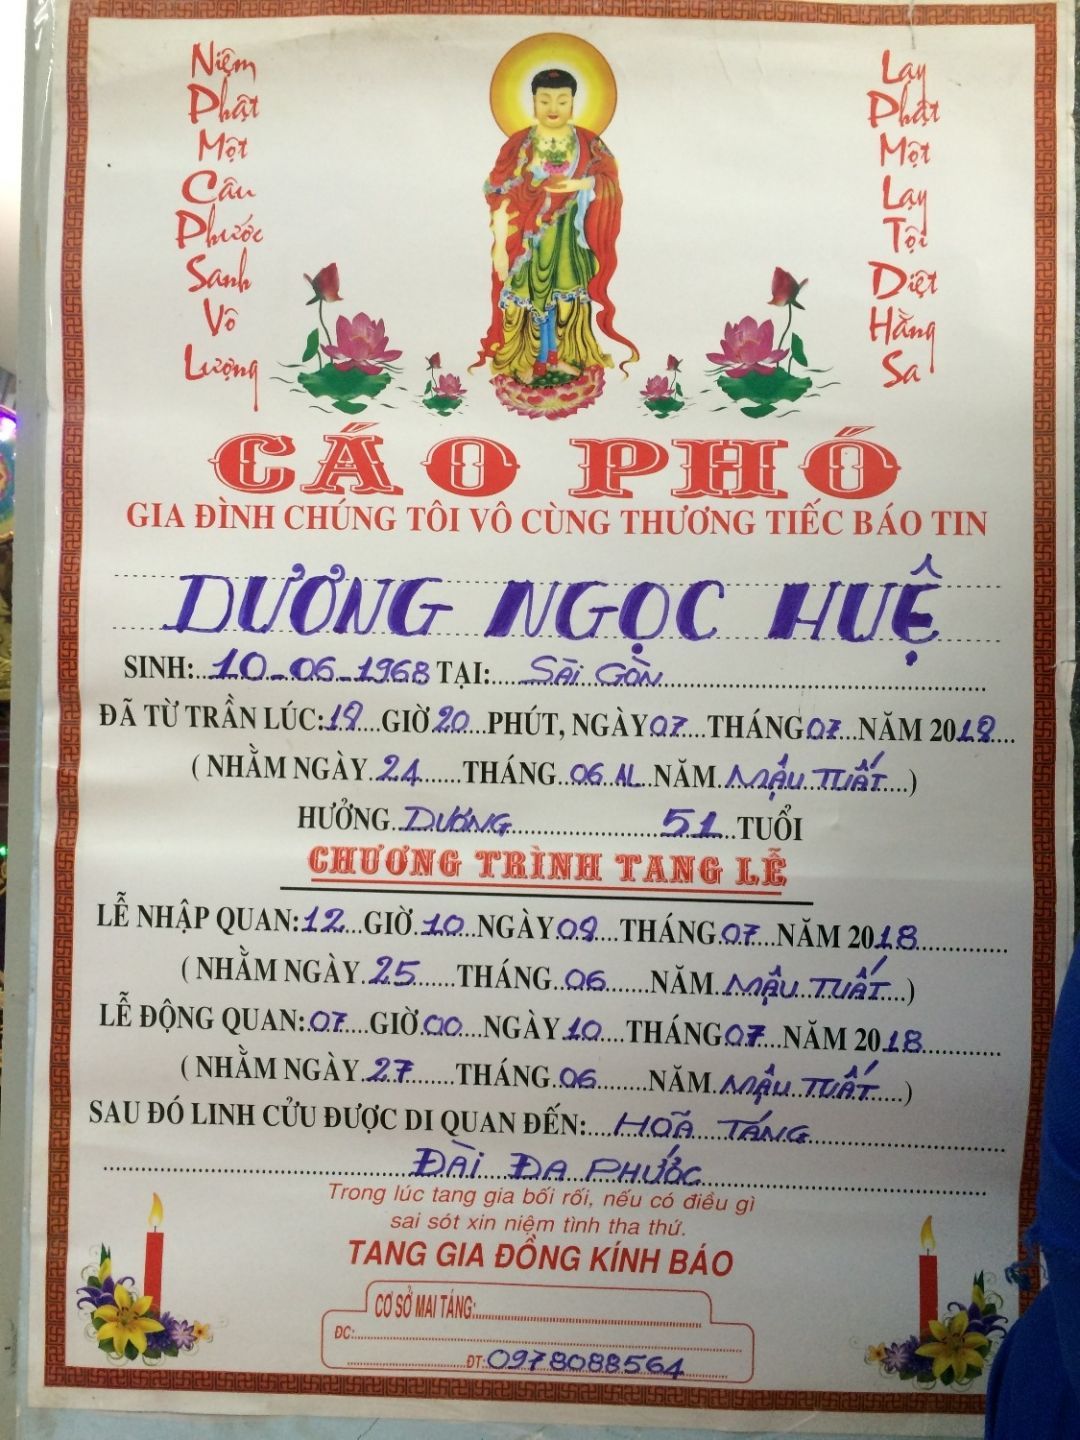 Niệm
Phật
Một
Câu
Phước
Sanh
Vô
Lượng
Lạy
Phật
Một
Lạy
Tội
Diệt
Hằng
Sa
CÁO PHÓ
GIA ĐÌNH CHÚNG TÔI VÔ CÙNG THƯƠNG TIẾC BÁO TIN
DƯƠNG NGỌC HUỆ
SINH: 10-06-1968 TẠI: SÀI GÒN
ĐÃ TỪ TRẦN LÚC: 18 GIỜ 20 PHÚT, NGÀY 07 THÁNG 07 NĂM 2018
( NHẰM NGÀY 24 THÁNG 06 AL NĂM MẬU TUẤT )
HƯỞNG DƯƠNG 51 TUỔI
CHƯƠNG TRÌNH TANG LỄ
LỄ NHẬP QUAN: 12 GIỜ 10 NGÀY 08 THÁNG 07 NĂM 2018
( NHẰM NGÀY 25 THÁNG 06 NĂM MẬU TUẤT )
LỄ ĐỘNG QUAN: 07 GIỜ 00 NGÀY 10 THÁNG 07 NĂM 2018
( NHẰM NGÀY 27 THÁNG 06 NĂM MẬU TUẤT )
SAU ĐÓ LINH CỬU ĐƯỢC DI QUAN ĐẾN: HOÃ TÁNG
ĐÀI ĐA PHƯỚC
Trong lúc tang gia bối rối, nếu có điều gì
sai sót xin niệm tình tha thứ.
TANG GIA ĐỒNG KÍNH BÁO
CƠ SỞ MAI TÁNG:
ĐC:
ĐT: 0978088564